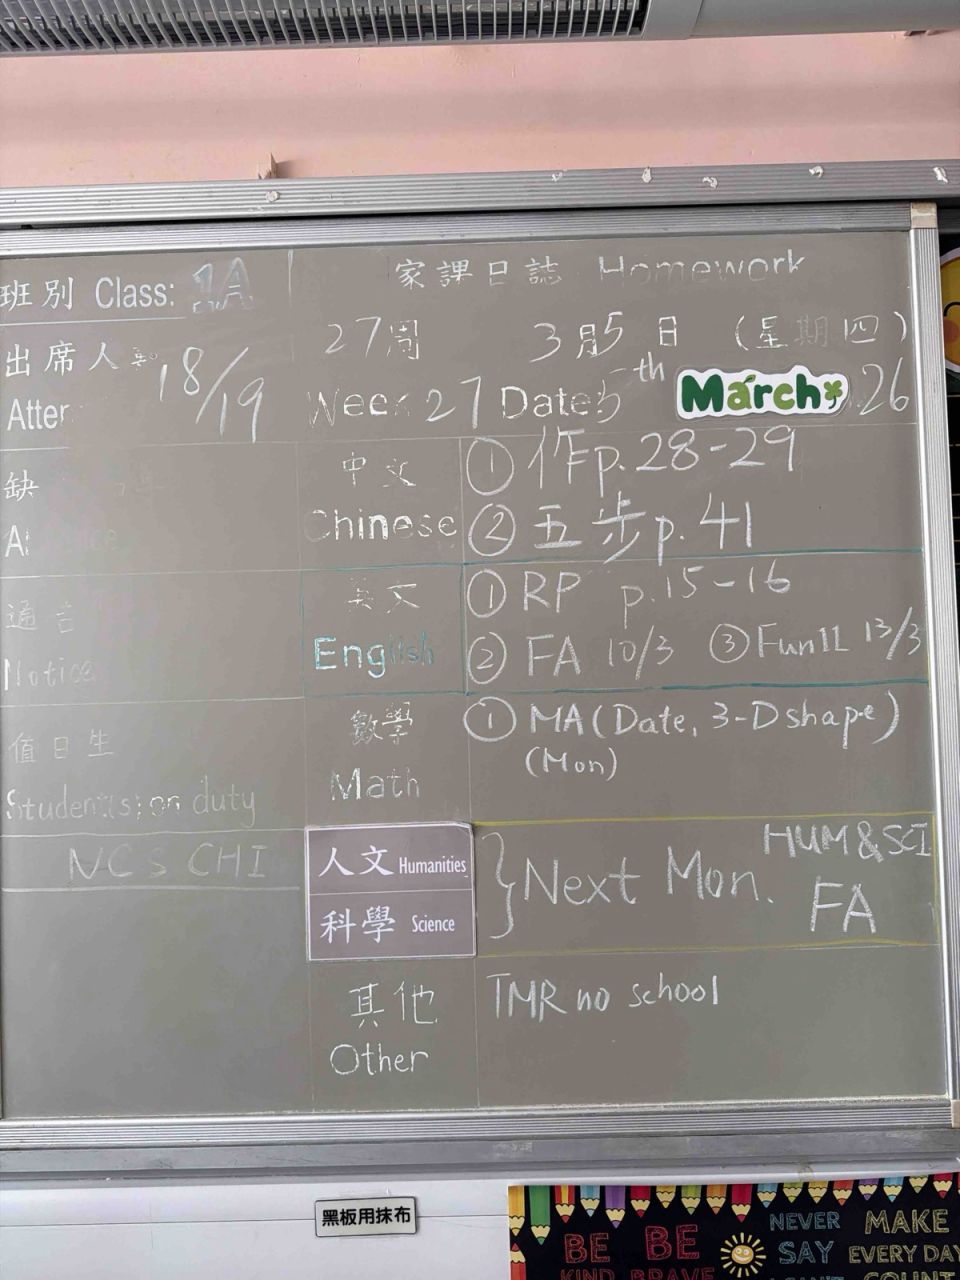 班別 Class: 1A
家課日誌 Homework
出席人數 18/19
27周 3月5日 (星期四)
Week 27 Date 5th March 26
中文 Chinese
① 作 p.28-29
② 五步 p.41
英文 English
① RP p.15-16
② FA 10/3 ③ Fun11 13/3
數學 Math
① MA (Date, 3-D shape)
(Mon)
人文 Humanities
科學 Science
} Next Mon. HUM & SCI
FA
其他 Other
TMR no school
缺
通告
Notice
值日生
Student(s) on duty
NCS CHI
黑板用抹布
BE KIND
BE BRAVE
NEVER SAY
MAKE EVERY DAY COUNT